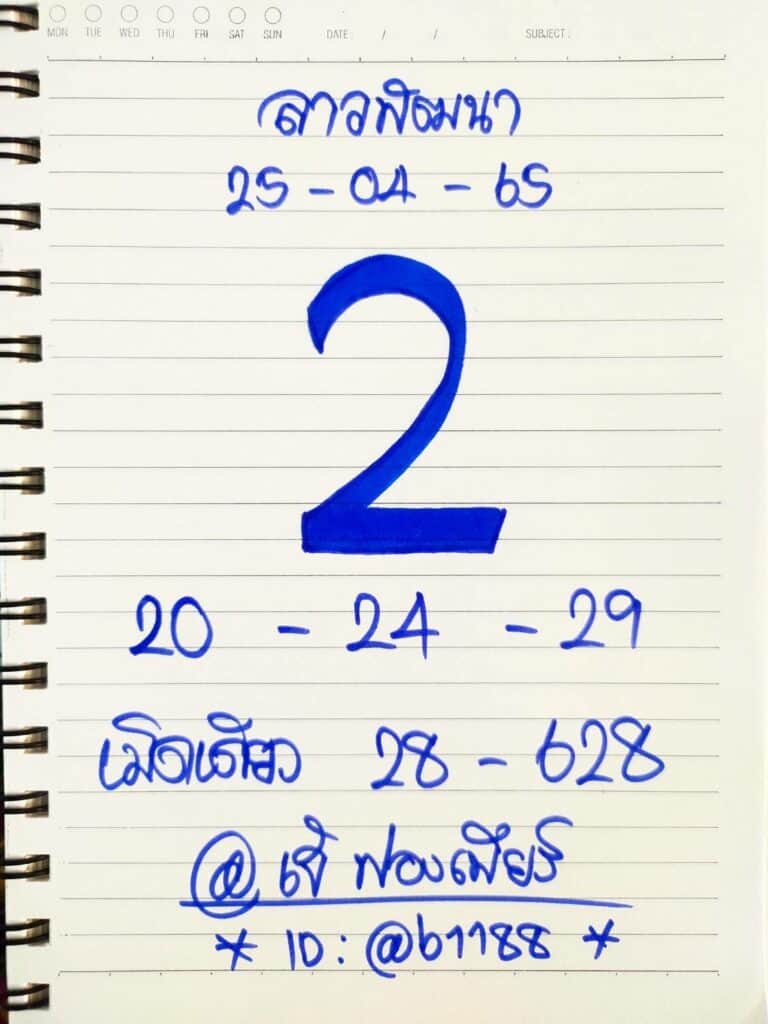 MON TUE WED THU FRI SAT SUN DATE: / / SUBJECT:
ลาวพัฒนา
25 - 04 - 65
2
20 - 24 - 29
เม็ดเดียว 28 - 628
@ เจ๊ ฟองเบียร์
* ID: @b1188 *